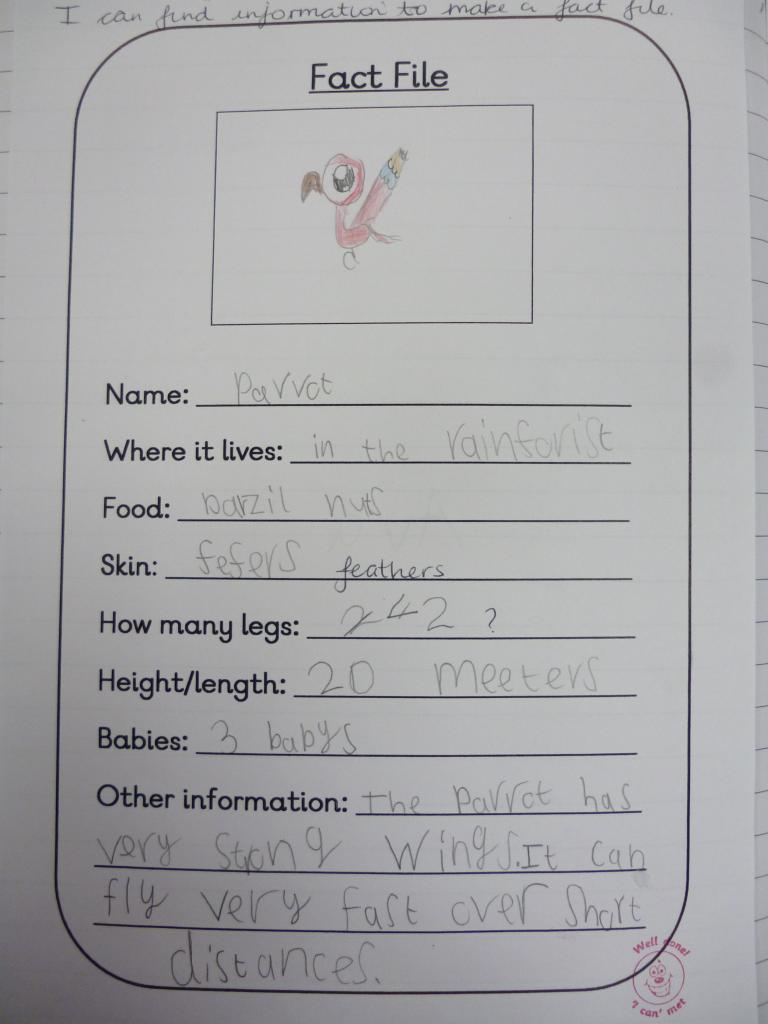 I can find information to make a fact file.
Fact File
Name: parrot
Where it lives: in the rainforist
Food: barzil nuts
Skin: fefers feathers
How many legs: 242 ?
Height/length: 20 meeters
Babies: 3 babys
Other information: the parrot has
very strong wings. It can
fly very fast over short
distances.
Well done!
'I can' met